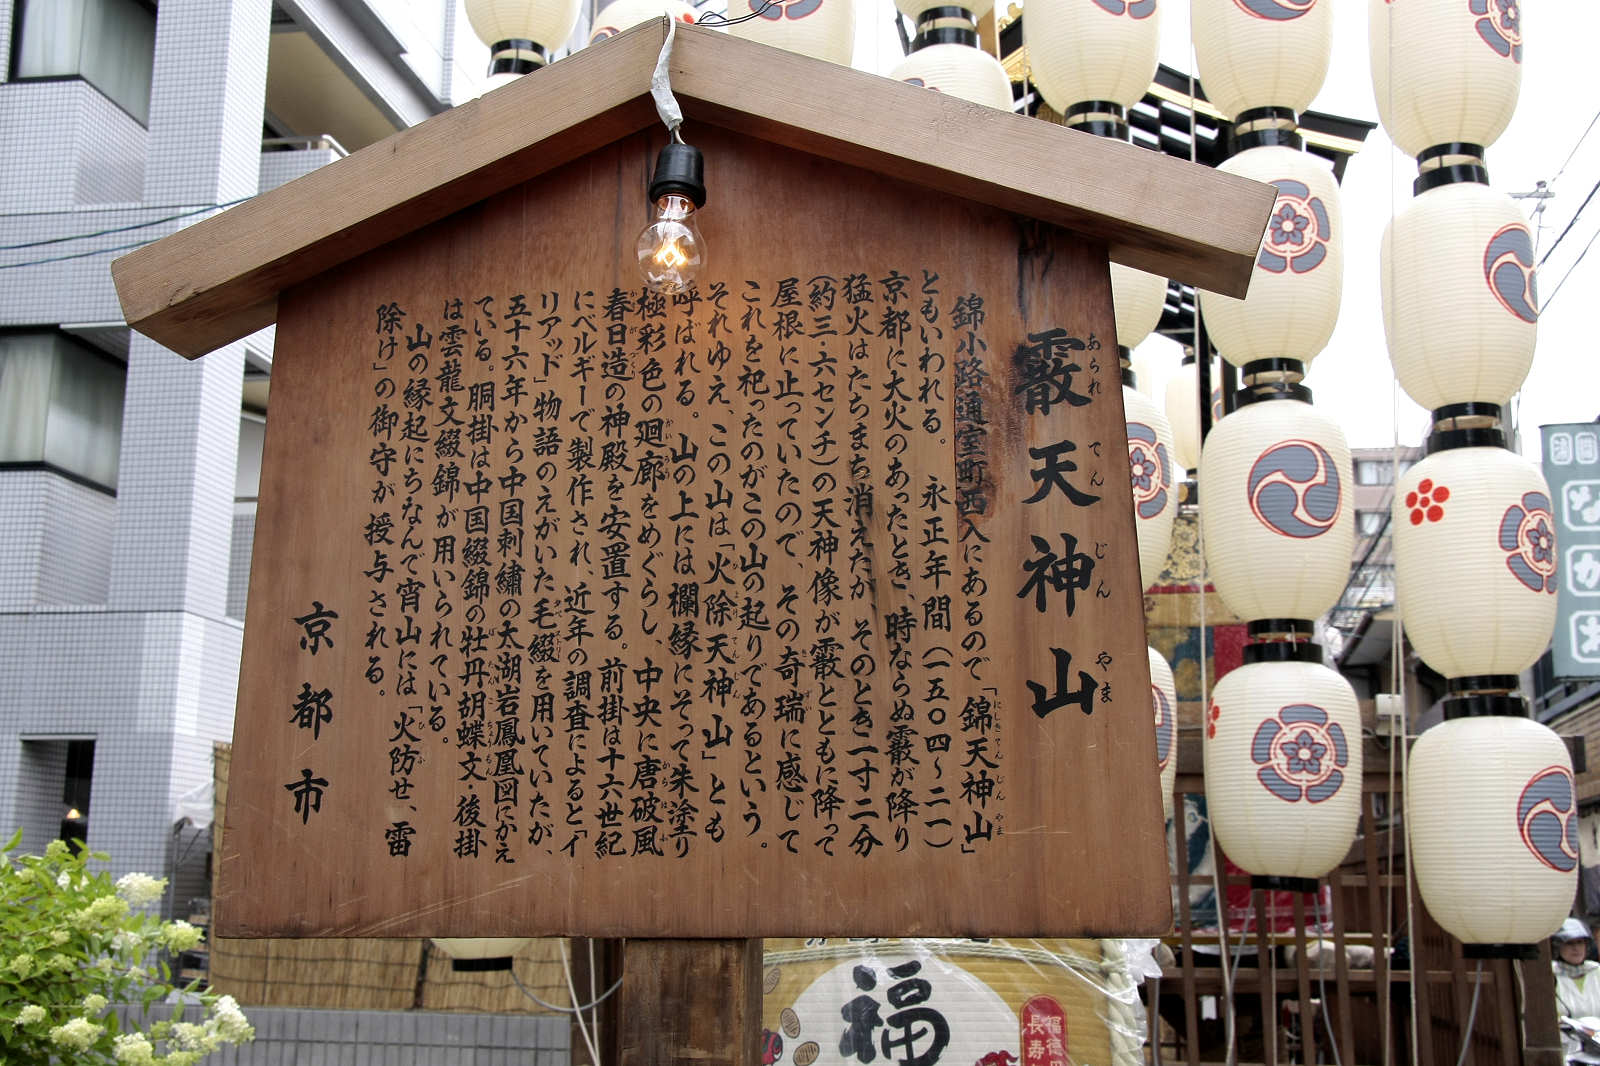 霰天神山
あられてんじんやま
錦小路通室町西入にあるので「錦天神山」
にしきてんじんやま
ともいわれる。 永正年間(一五〇四〜二一)
京都に大火のあったとき、時ならぬ霰が降り
猛火はたちまち消えたが、そのとき一寸二分
(約三・六センチ)の天神像が霰とともに降って
屋根に止っていたので、その奇瑞に感じて
きずい
これを祀ったのがこの山の起りであるという。
それゆえ、この山は「火除天神山」とも
ひよけてんじん
呼ばれる。山の上には欄縁にそって朱塗り
極彩色の廻廊をめぐらし、中央に唐破風
かいろう からはふ
春日造の神殿を安置する。前掛は十六世紀
かすがづくり
にベルギーで製作され、近年の調査によると「イ
リアッド」物語のえがいた毛綴を用いていたが、
けつづり
五十六年から中国刺繍の太湖岩鳳凰図にかえ
ている。胴掛は中国綴錦の牡丹胡蝶文・後掛
ぼたんこちょうもん
は雲龍文綴錦が用いられている。
山の縁起にちなんで宵山には「火防せ、雷
ひぶ
除け」の御守が授与される。
京都市
福
福徳
長寿